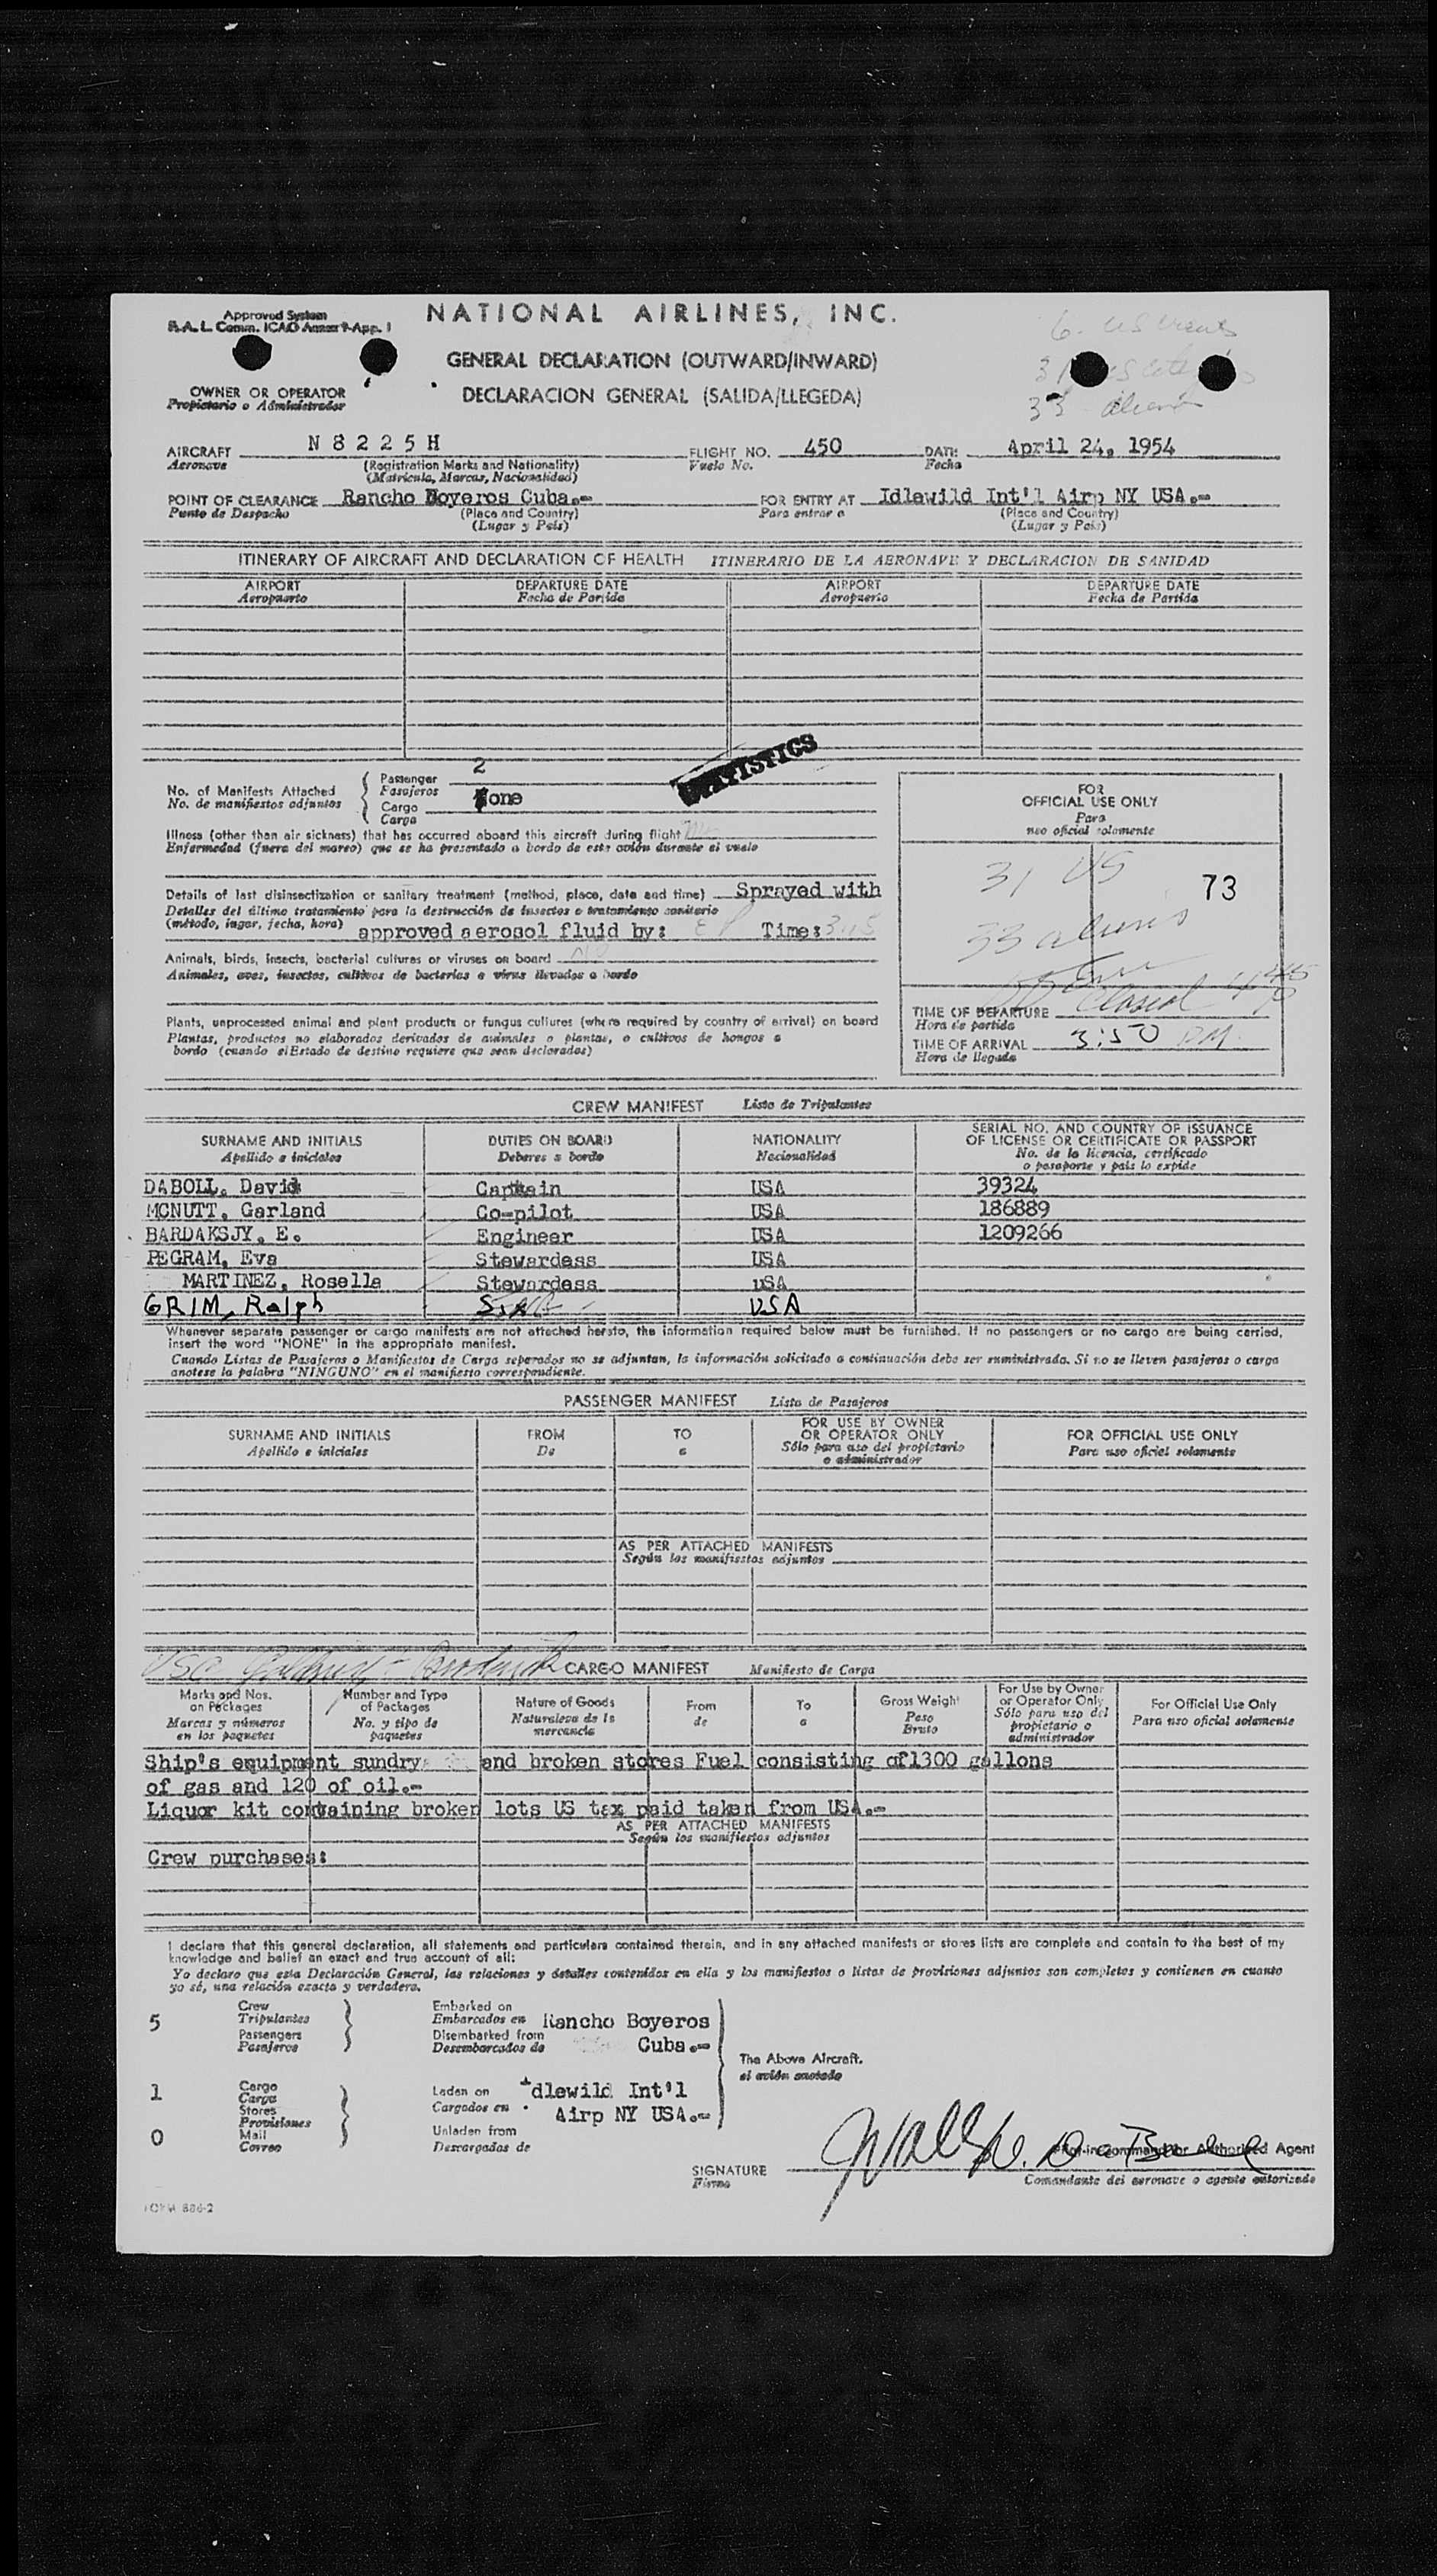 Approved System
B.A.L. Comm. ICAO Annex 9-App. 1
NATIONAL AIRLINES, INC.
GENERAL DECLARATION (OUTWARD/INWARD)
DECLARACION GENERAL (SALIDA/LLEGEDA)
OWNER OR OPERATOR
Propietario o Administrador
33 aliens
AIRCRAFT N8225H FLIGHT NO. 450 DATE April 24, 1954
Aeronave (Registration Marks and Nationality) Vuelo No. Fecha
(Matricula, Marcas, Nacionalidad)
POINT OF CLEARANCE Rancho Boyeros Cuba.- FOR ENTRY AT Idlewild Int'l Airp NY USA.-
Punto de Despacho (Place and Country) Para entrar a (Place and Country)
(Lugar y Pais) (Lugar y Pais)
ITINERARY OF AIRCRAFT AND DECLARATION OF HEALTH ITINERARIO DE LA AERONAVE Y DECLARACION DE SANIDAD
AIRPORT DEPARTURE DATE AIRPORT DEPARTURE DATE
Aeropuerto Fecha de Partida Aeropuerto Fecha de Partida
STATISTICS
No. of Manifests Attached Passenger 2
No. de manifiestos adjuntos Pasajeros
Cargo None
Carga
Illness (other than air sickness) that has occurred aboard this aircraft during flight
Enfermedad (fuera del mareo) que se ha presentado a bordo de este avión durante el vuelo
Details of last disinsectization or sanitary treatment (method, place, date and time) Sprayed with
Detalles del último tratamiento para la destrucción de insectos o tratamiento sanitario
(método, lugar, fecha, hora) approved aerosol fluid by: Time:
Animals, birds, insects, bacterial cultures or viruses on board
Animales, aves, insectos, cultivos de bacterias o virus llevados a bordo
Plants, unprocessed animal and plant products or fungus cultures (where required by country of arrival) on board
Plantas, productos no elaborados derivados de animales o plantas, o cultivos de hongos a
bordo (cuando el Estado de destino requiere que sean declarados)
FOR
OFFICIAL USE ONLY
Para
uso oficial solamente
31 US
73
33 aliens
Closed
TIME OF DEPARTURE
Hora de partida
TIME OF ARRIVAL 3:50 PM.
Hora de llegada
CREW MANIFEST Lista de Tripulantes
SURNAME AND INITIALS DUTIES ON BOARD NATIONALITY SERIAL NO. AND COUNTRY OF ISSUANCE
OF LICENSE OR CERTIFICATE OR PASSPORT
Apellido e iniciales Deberes a bordo Nacionalidad No. de la licencia, certificado
o pasaporte y pais lo expide
DABOLL, David Captain USA 39324
MCNUTT, Garland Co-pilot USA 186889
BARDAKSJY, E. Engineer USA 1209266
PEGRAM, Eva Stewardess USA
MARTINEZ, Rosella Stewardess USA
GRIM, Ralph USA
Whenever separate passenger or cargo manifests are not attached hereto, the information required below must be furnished. If no passengers or no cargo are being carried,
insert the word "NONE" in the appropriate manifest.
Cuando Listas de Pasajeros o Manifiestos de Carga separados no se adjuntan, la información solicitada a continuación debe ser suministrada. Si no se lleven pasajeros o carga
anotese la palabra "NINGUNO" en el manifiesto correspondiente.
PASSENGER MANIFEST Lista de Pasajeros
SURNAME AND INITIALS FROM TO FOR USE BY OWNER
OR OPERATOR ONLY FOR OFFICIAL USE ONLY
Apellido e iniciales De a Sólo para uso del propietario
o administrador Para uso oficial solamente
AS PER ATTACHED MANIFESTS
Según los manifiestos adjuntos
CARGO MANIFEST Manifiesto de Carga
Marks and Nos.
on Packages
Marcas y números
en los paquetes
Number and Type
of Packages
No. y tipo de
paquetes
Nature of Goods
Naturaleza de la
mercancia
From
de
To
a
Gross Weight
Peso
Bruto
For Use by Owner
or Operator Only
Sólo para uso del
propietario o
administrador
For Official Use Only
Para uso oficial solamente
Ship's equipment sundry and broken stores Fuel consisting of1300 gallons
of gas and 120 of oil.-
Liquor kit containing broken lots US tax paid taken from USA.-
AS PER ATTACHED MANIFESTS
Según los manifiestos adjuntos
Crew purchases:
I declare that this general declaration, all statements and particulars contained therein, and in any attached manifests or stores lists are complete and contain to the best of my
knowledge and belief an exact and true account of all:
Yo declaro que esta Declaración General, las relaciones y detalles contenidos en ella y los manifiestos o listas de provisiones adjuntos son completos y contienen en cuanto
yo sé, una relación exacta y verdadera.
5 Crew
Tripulantes
Passengers
Pasajeros
Embarked on
Embarcados en Rancho Boyeros
Disembarked from
Desembarcados de Cuba.-
The Above Aircraft.
el avión anotado
1 Cargo
Carga
Stores
Provisiones
0 Mail
Correo
Laden on
Cargados en Idlewild Int'l
Airp NY USA.-
Unladen from
Descargados de
SIGNATURE
Firma
Pilot-in-Command or Authorized Agent
Comandante del aeronave o agente autorizado
FORM 886-2